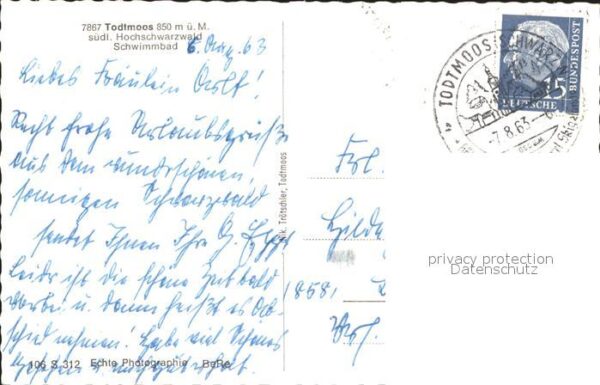 7867 Todtmoos 850 m ü. M.
südl. Hochschwarzwald
Schwimmbad
6. Aug. 63
Liebes Fräulein
Recht frohe Urlaubsgrüße
aus dem wunderschönen,
sonnigen Schwarzwald
sendet Ihnen Ihr G.
Leider ist die schöne Zeit bald
vorbei u. dann heißt es Ab-
schied nehmen! Habe viel Schönes
gesehen u.
106 S 312 Echte Photographie - BeRe
Nik. Trötschler, Todtmoos
TODTMOOS/SCHWARZW
-7.8.63-
15
DEUTSCHE
BUNDESPOST
Frl.
Hilde
(858)
privacy protection
Datenschutz